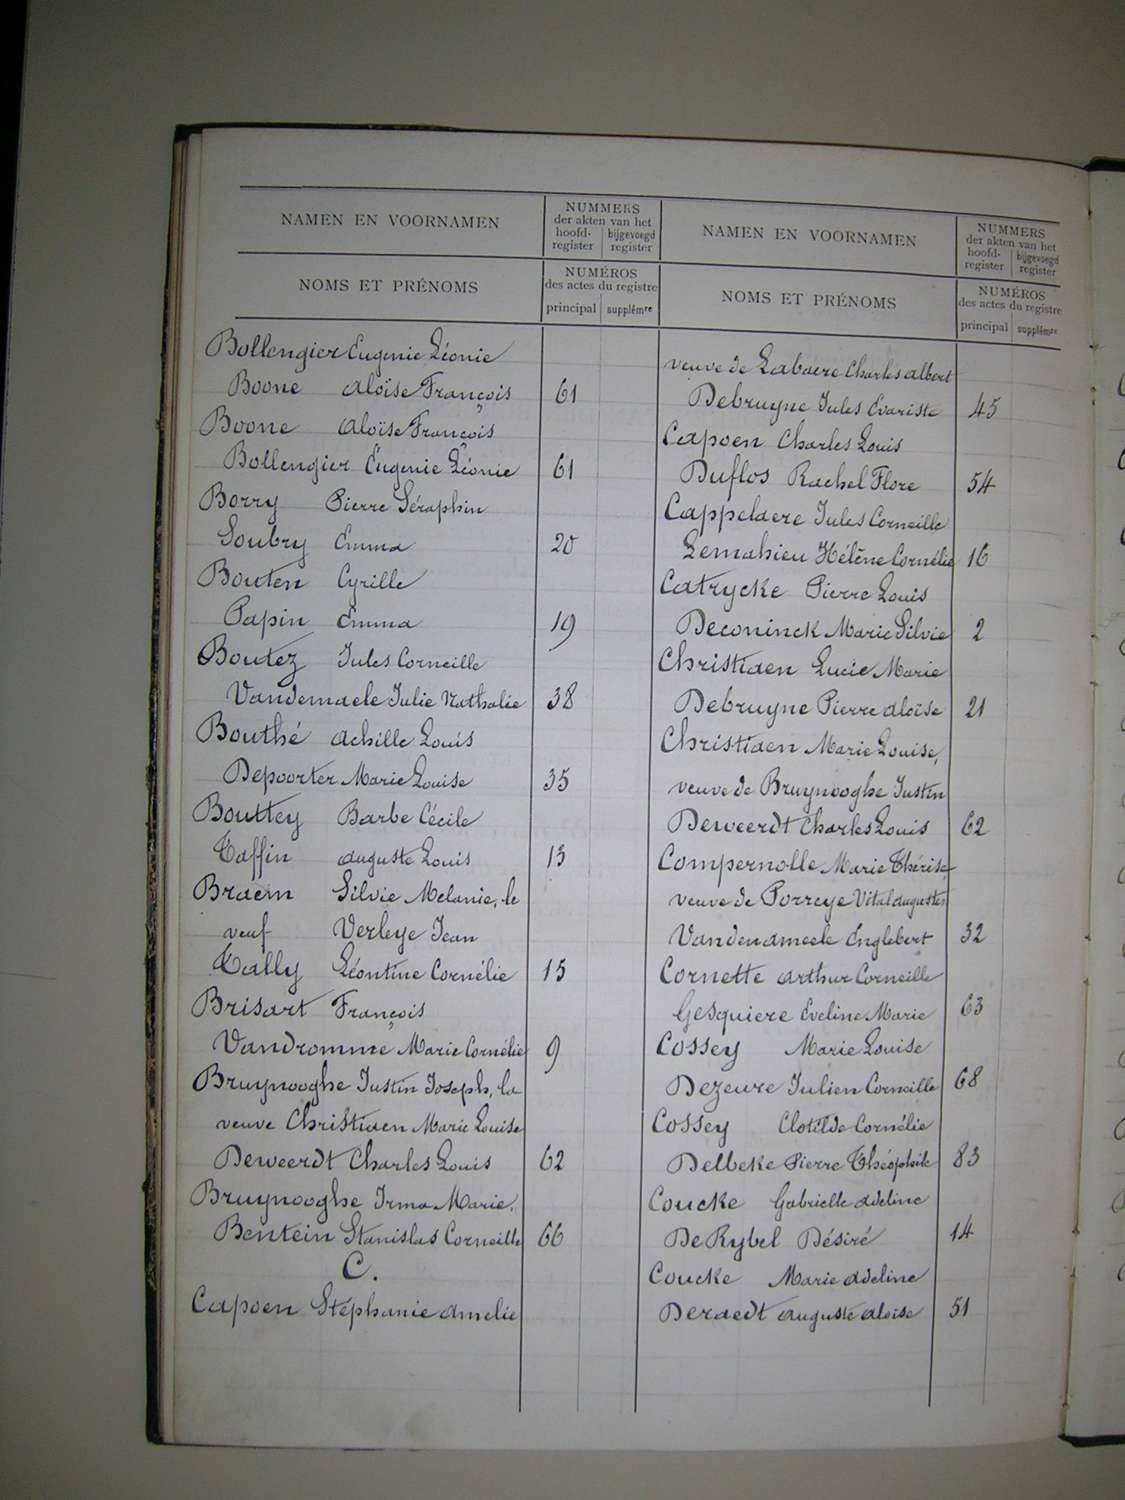 NAMEN EN VOORNAMEN
NOMS ET PRÉNOMS
NUMMERS
der akten van het
hoofd-
register
bijgevoegd
register
NUMÉROS
des actes du registre
principal
supplémre
Bollengier Eugenie Léonie
Boone Aloïse François 61
Boone Aloïse François
Bollengier Eugenie Léonie 61
Borry Pierre Séraphin
Soubry Emma 20
Bouten Cyrille
Papin Emma 19
Boutez Jules Corneille
Vandemaele Julie Nathalie 38
Bouthé Achille Louis
Depoorter Marie Louise 35
Bouttey Barbe Cécile
Taffin Auguste Louis 13
Braem Silvie Melanie, le
veuf Verleye Jean
Tally Léontine Cornélie 15
Brisart François
Vandromme Marie Cornélie 9
Bruynooghe Justin Joseph, la
veuve Christiaen Marie Louise
Deweerdt Charles Louis 62
Bruynooghe Irma Marie,
Bentein Stanislas Corneille 66
C.
Capoen Stéphanie Amelie
NAMEN EN VOORNAMEN
NOMS ET PRÉNOMS
NUMMERS
der akten van het
hoofd-
register
bijgevoegd
register
NUMÉROS
des actes du registre
principal
supplémre
veuve de Labaere Charles Albert
Debruyne Jules Evariste 45
Capoen Charles Louis
Duflos Rachel Flore 54
Cappelaere Jules Corneille
Lemahieu Hélène Cornélie 16
Catrycke Pierre Louis
Deconinck Marie Silvie 2
Christiaen Lucie Marie
Debruyne Pierre Aloïse 21
Christiaen Marie Louise,
veuve de Bruynooghe Justin
Deweerdt Charles Louis 62
Compernolle Marie Thérèse
veuve de Porreye Vital Augustin
Vandenameele Englebert 32
Cornette Arthur Corneille
Gesquiere Eveline Marie 63
Cossey Marie Louise
Dezeure Julien Corneille 68
Cossey Clotilde Cornélie
Delbeke Pierre Théophile 83
Coucke Gabrielle Adeline
De Rybel Désiré 14
Coucke Marie Adeline
Deraedt Auguste Aloïse 51